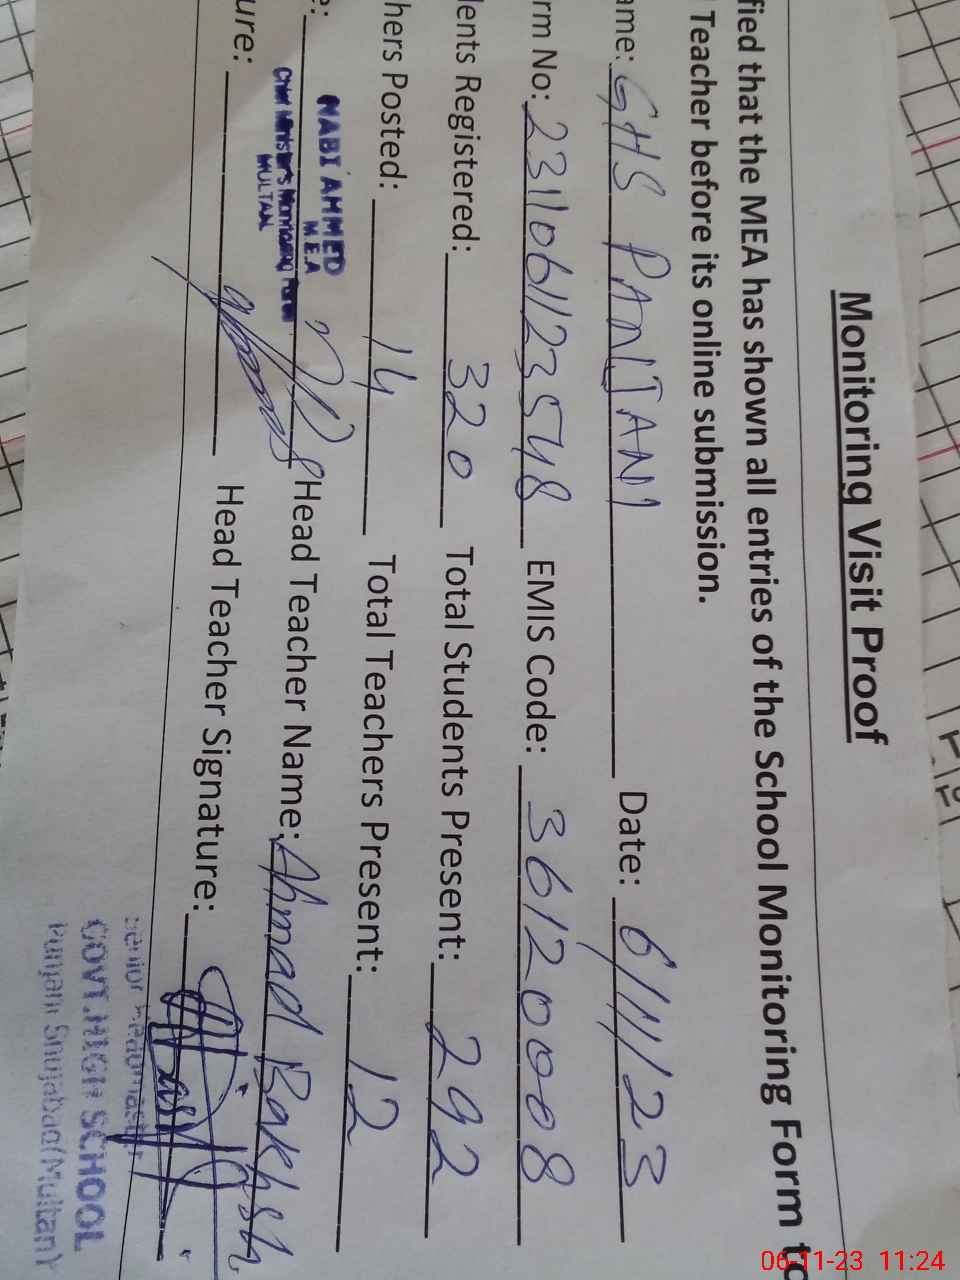 Monitoring Visit Proof
fied that the MEA has shown all entries of the School Monitoring Form to
Teacher before its online submission.
ame: GHS PANJANI Date: 6/11/23
rm No: 2311061123548 EMIS Code: 36120008
ents Registered: 320 Total Students Present: 292
hers Posted: 14 Total Teachers Present: 12
e: Head Teacher Name: Ahmad Bakhsh
NABI AHMED
M.E.A
Chief Minister's Monitoring Force
MULTAN
ure: Head Teacher Signature:
Senior Headmaster
GOVT.HIGH SCHOOL
Punjani Shujabad(Multan)
06-11-23 11:24